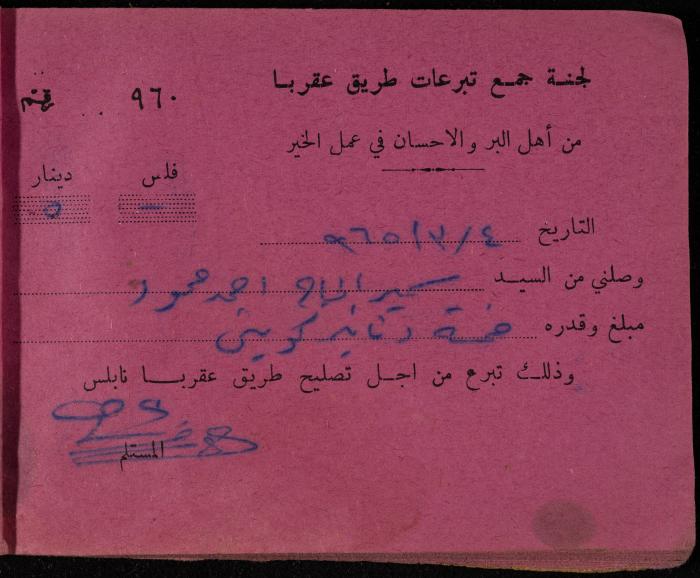 لجنة جمع تبرعات طريق عقربا
رقم ٩٦٠
من أهل البر والاحسان في عمل الخير
فلس دينار
— ٥
التاريخ ٩٦٥/٣/٤
وصلني من السيد سمير الحاج احمد محمود
مبلغ وقدره خمسة دنانير كويتي
وذلك تبرع من اجل تصليح طريق عقربا نابلس
المستلم